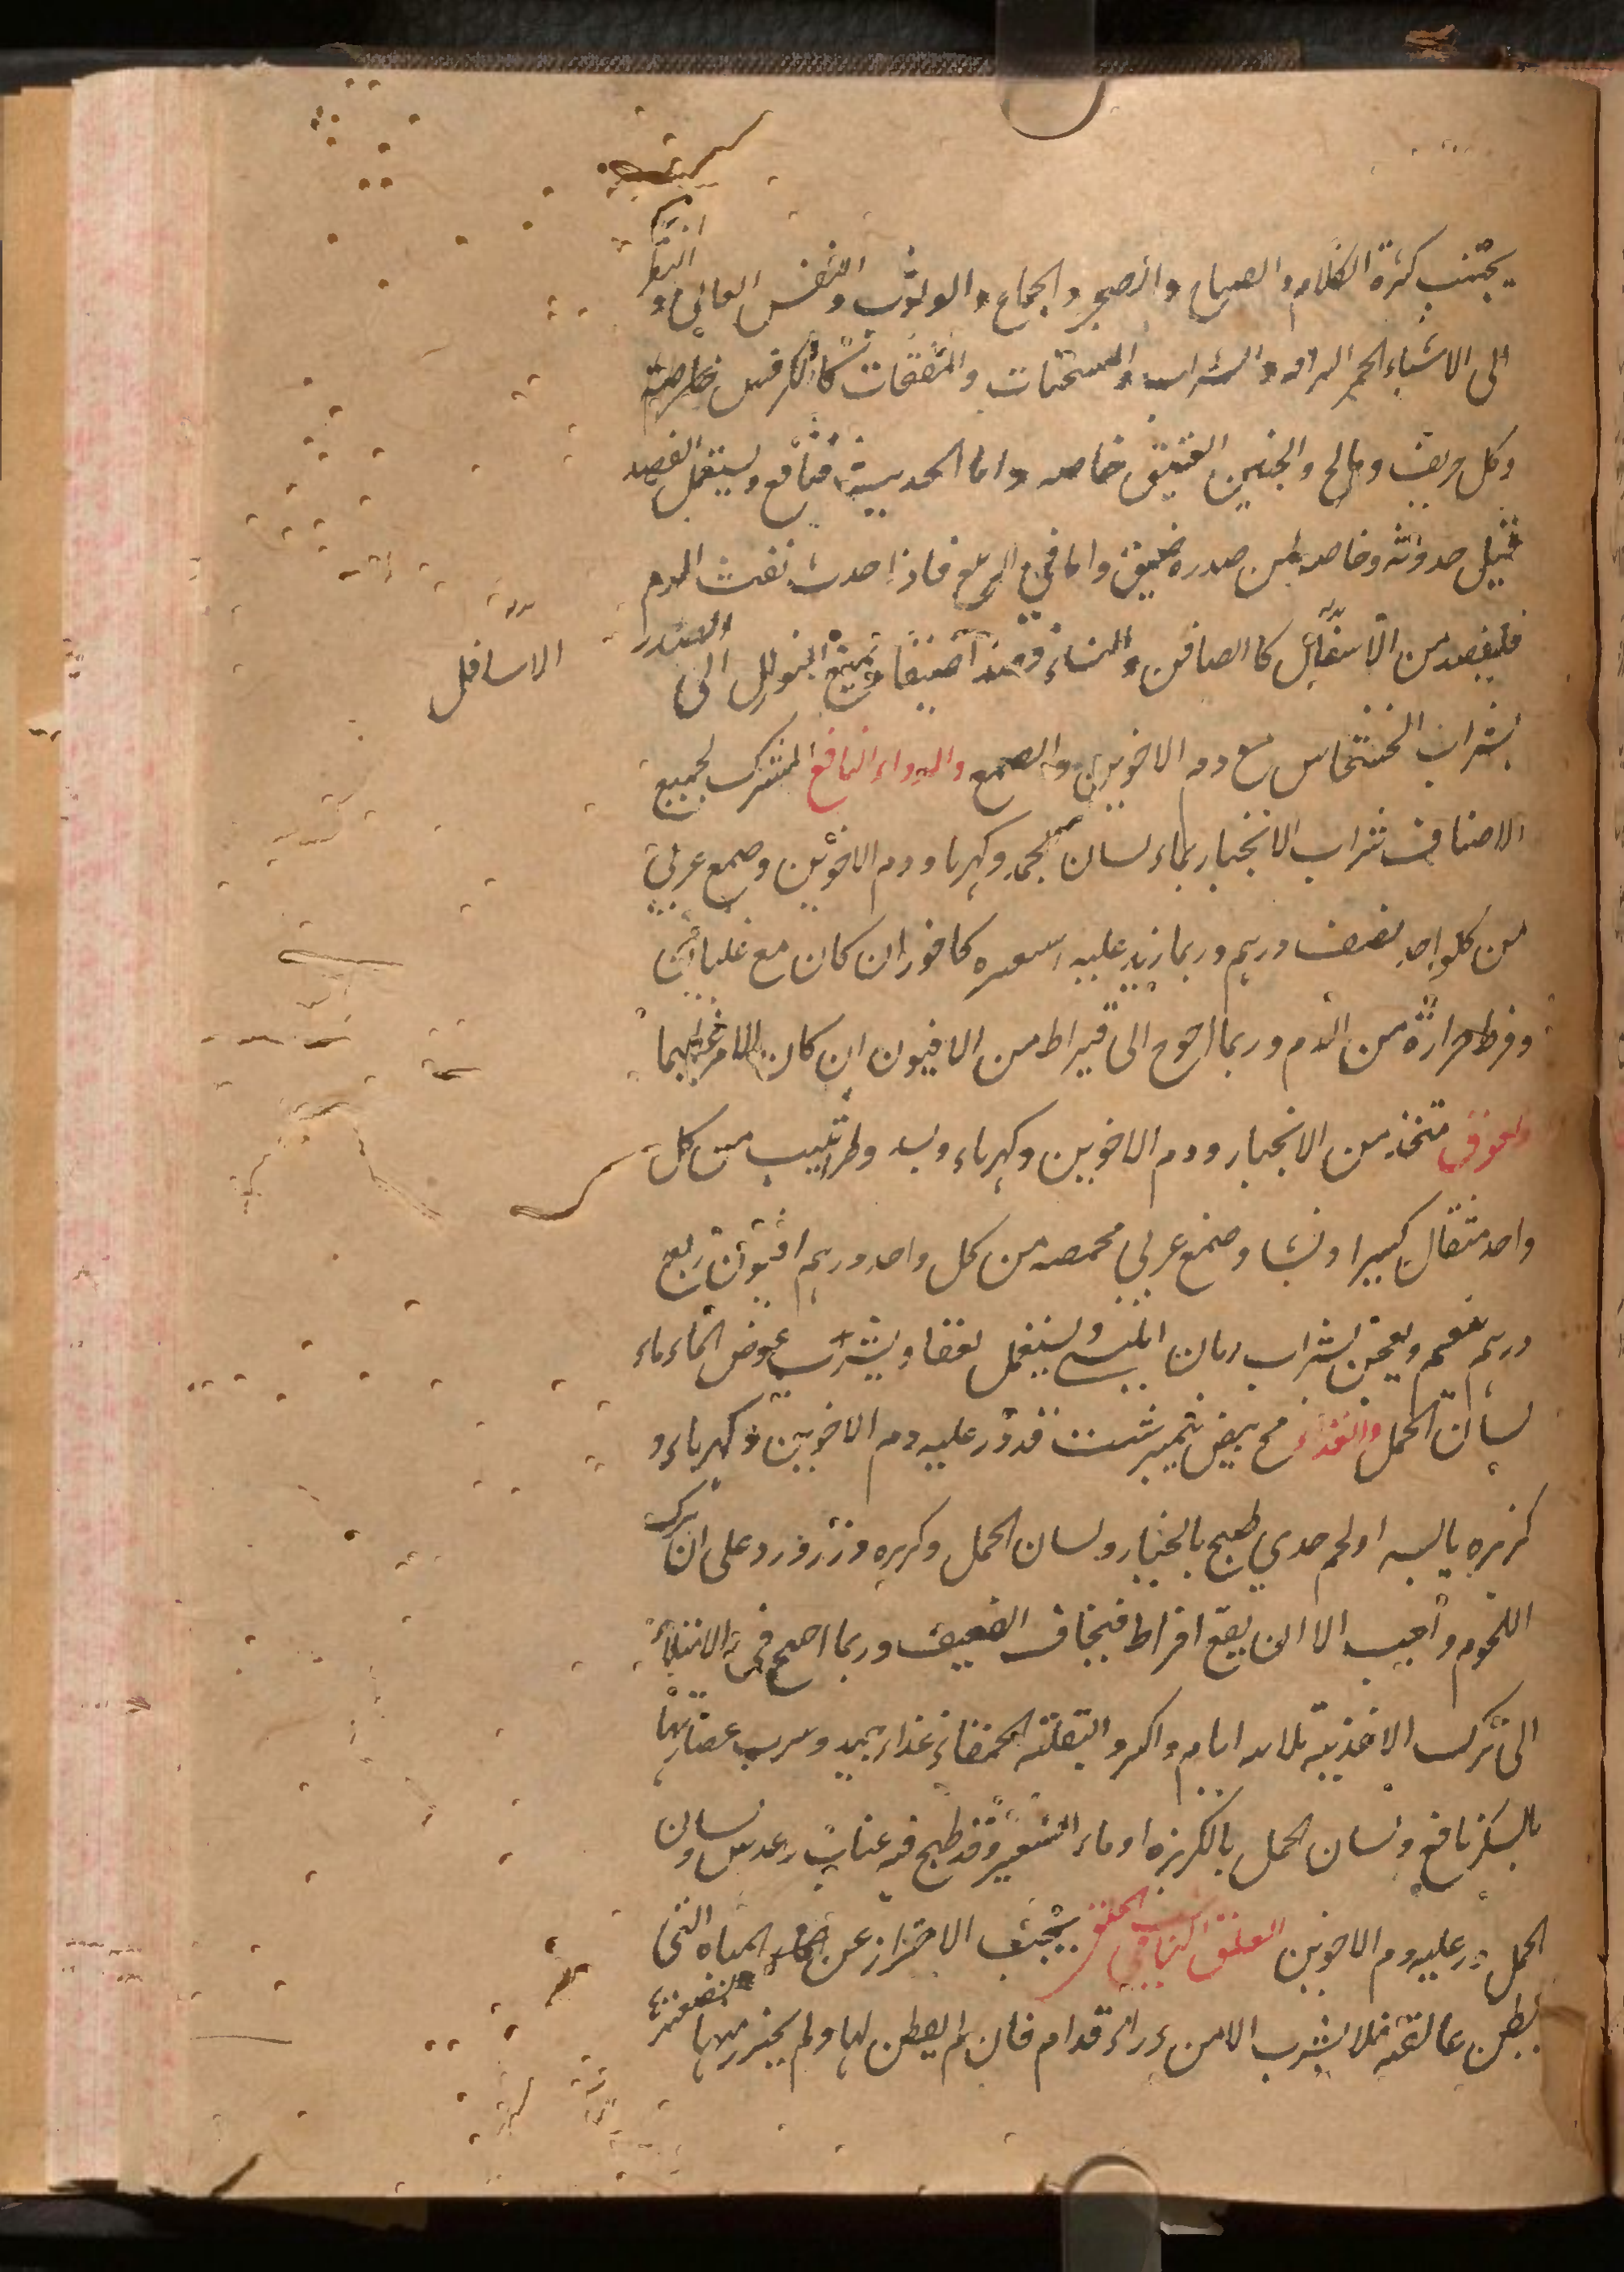 يجتنب كثرة الكلام والصياح والضجر والجماع والوثوب والنفس العالي و النظر
الى الاشياء الحمر البراقه والشراب والمسخنات والمفتحات كالكرفس خاصة
وكل حريف ومالح والجبن العتيق خاصه واما الحديث فنافع ويستعمل الفصد
قبل حدوثه وخاصه لمن صدره ضيق واما في الربيع فاذا حدث نفث الدم
فليفصد من الاسافل كالصافن والنساء فصدا ضيقا ويمنع النوازل الى الصدر
الاسافل
بشراب الخشخاش مع دم الاخوين والصمغ والدواء النافع المشترك لجميع
الاصناف شراب الانجبار بماء لسان الحمل وكهربا ودم الاخوين وصمغ عربي
من كلواحد نصف درهم وربما زيد عليه كافور ان كان مع غليان
وفرط حرارة من الدم وربما احوج الى قيراط من الافيون ان كان الامر عظيما
ولعوق متخذ من الانجبار ودم الاخوين وكهرباء وبسد وطراثيث من كل
واحد مثقال كثيرا ونشا وصمغ عربي محمصه من كل واحد درهم افيون ربع
درهم ينعم ويعجن بشراب رمان ويستعمل لعقا ويشرب عوض الماء ماء
لسان الحمل والغذاء مح بيض نيمبرشت قد ذر عليه دم الاخوين وكهرباء و
كزبره يابسه او لحم جدي طبخ بالخيار ولسان الحمل وكزبره وزر ورد على ان ترك
اللحوم واجب الا ان يقع افراط فيخاف الضعيف وربما احتيج في الابتداء
الى ترك الاغذية ثلاثه ايام واكثر والبقلة الحمقاء غذاء جيد وشرب عصارتها
بالسكر نافع ولسان الحمل بالكزبره او ماء الشعير وقد طبخ فيه عناب وعدس ولسان
الحمل وذر عليه دم الاخوين العلق الناشب في الحلق يجب الاحتراز عن المياه التي
يظن عالقة فلا يشرب الا من وراء فدام فان لم يفطن لها ولم يحترز منها